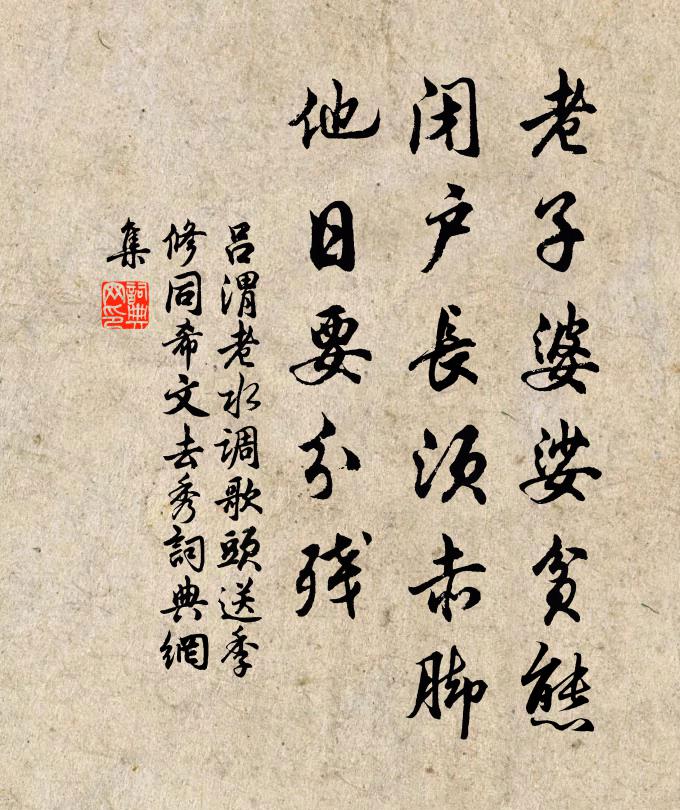 老子婆娑贫態
闭户長须赤脚
他日要分残
吕渭老水调歌頭送季
修同希文去秀詞典網
集
詞典
网印